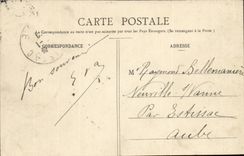 CARTE POSTALE
La Correspondance au recto n'est pas acceptée par tous les Pays Étrangers. (Se renseigner à la Poste.)
CORRESPONDANCE
ADRESSE
Bon souvenir
M Raymond
Neuville Vanne
Par Estissac
Aube